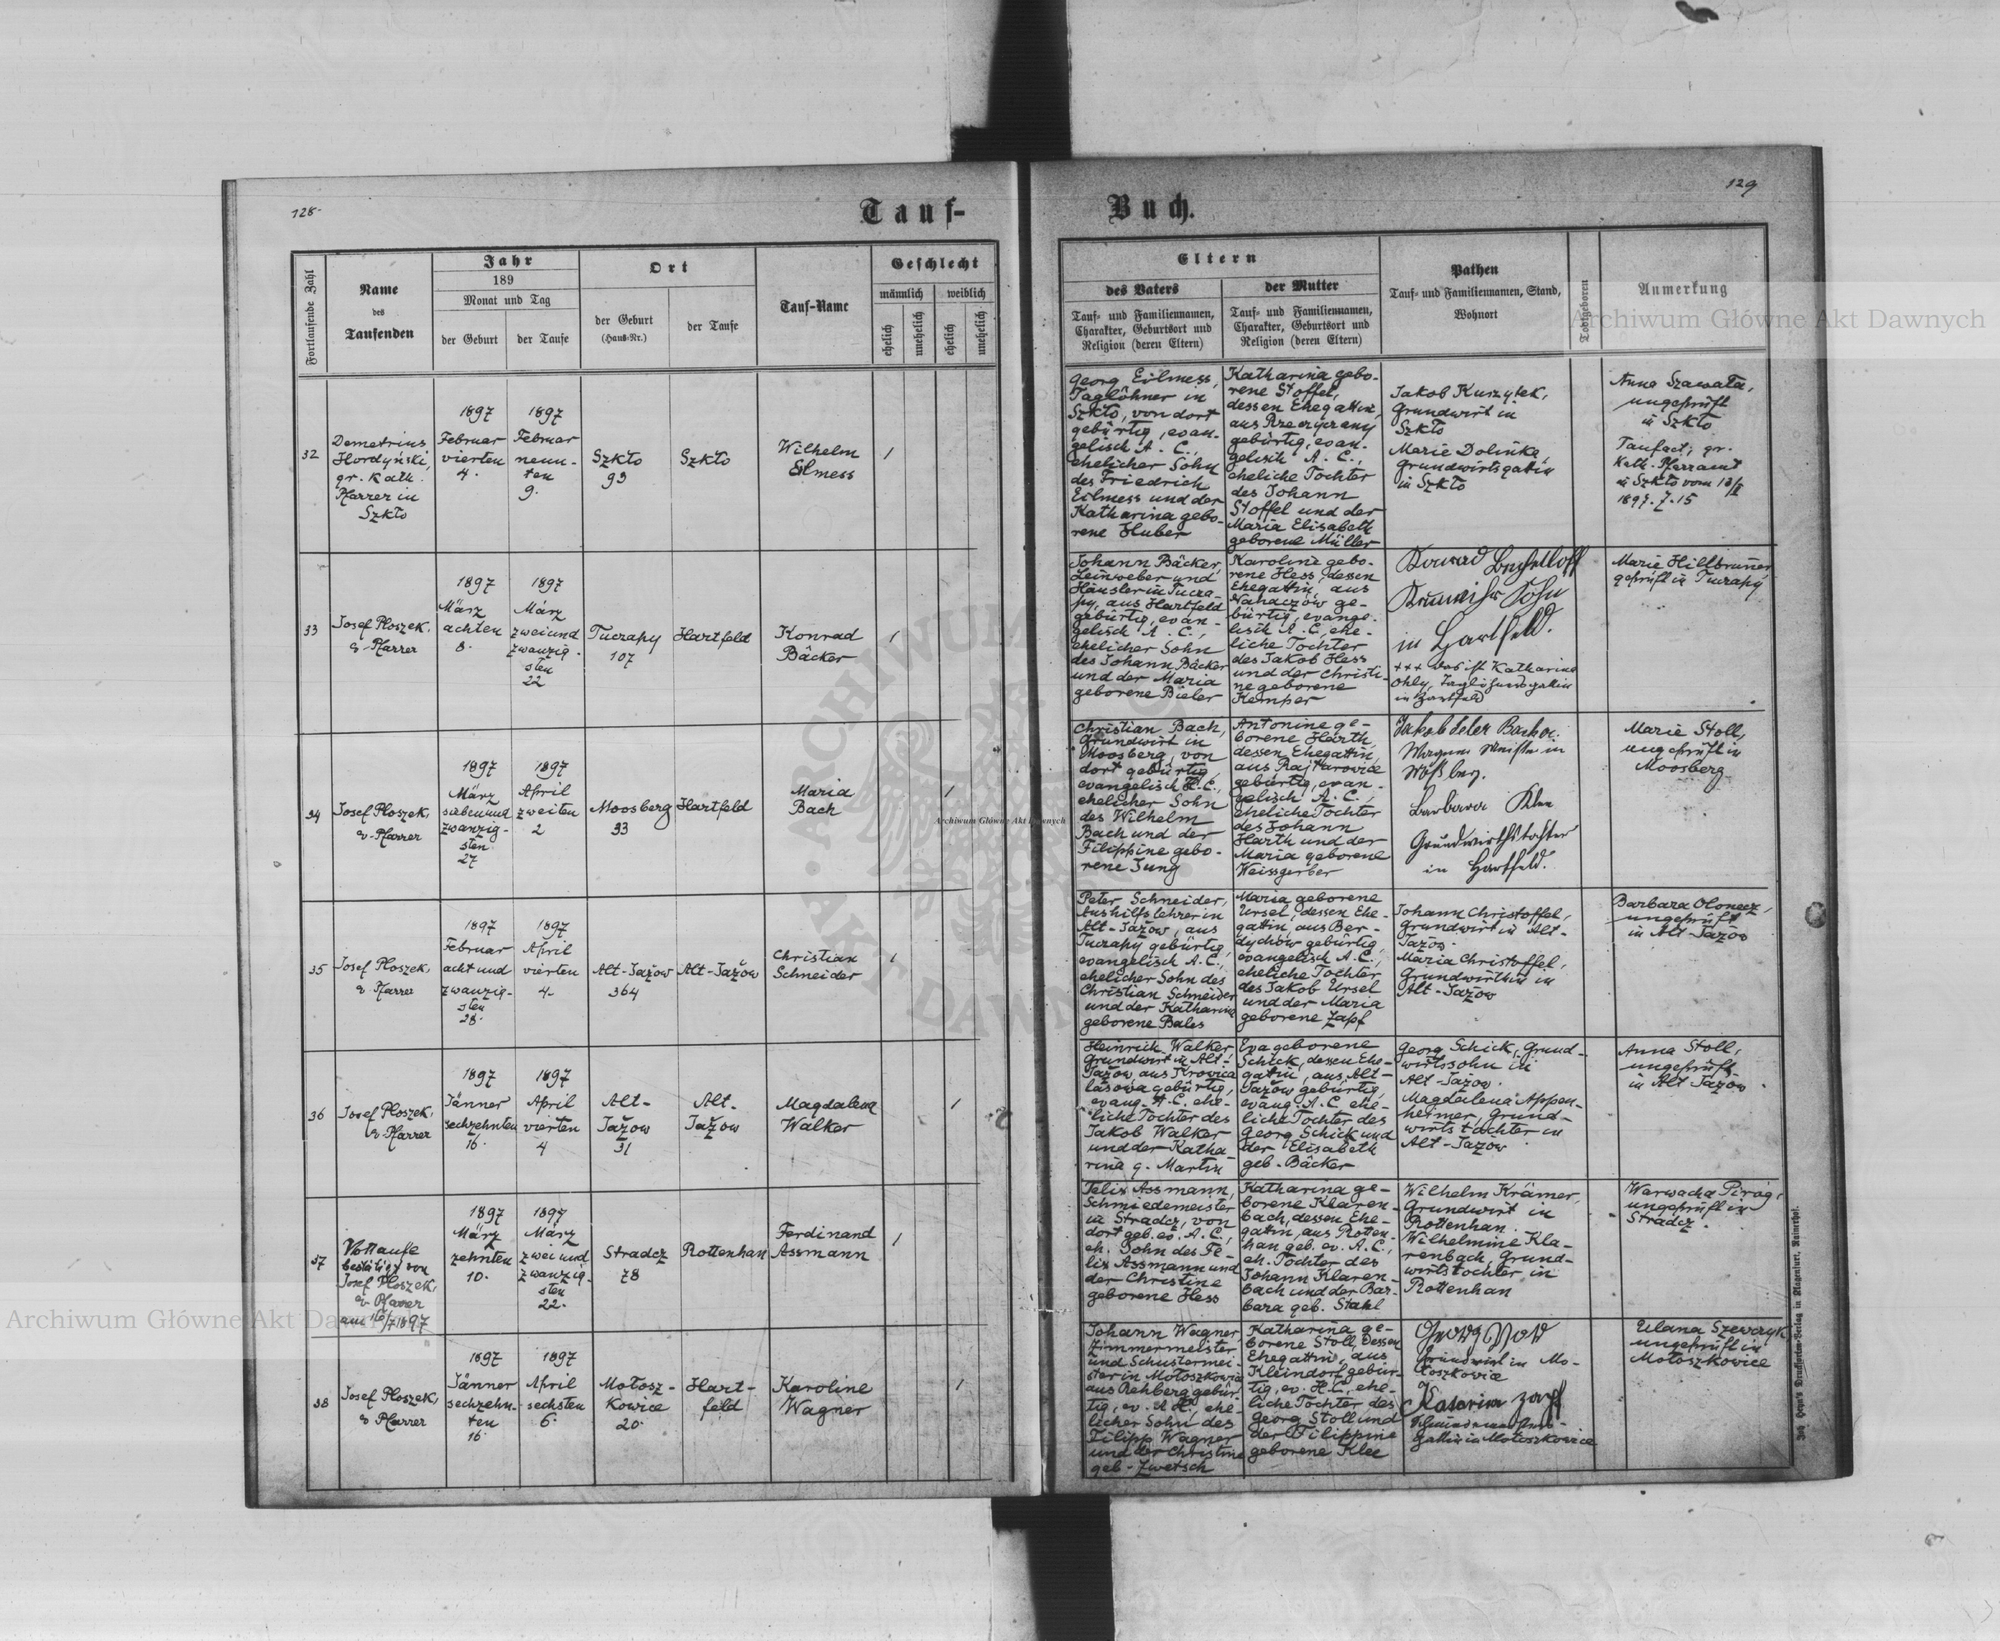 128.
Tauf-
Fortlaufende Zahl
Name
des
Taufenden
Jahr
189
Monat und Tag
der Geburt
der Taufe
Ort
der Geburt
(Haus-Nr.)
der Taufe
Tauf-Name
Geschlecht
männlich
weiblich
ehelich
unehelich
ehelich
unehelich
32
Demetrius
Hordyński,
gr. kath.
Pfarrer in
Szkło
1897
Februar
vierten
4.
1897
Februar
neun-
ten
9.
Szkło
93
Szkło
Wilhelm
Eilmess
1
33
Josef Ploszek,
ev. Pfarrer
1897
März
achten
8.
1897
März
zweiund
zwanzig-
sten
22
Tuczapy
107
Hartfeld
Konrad
Bäcker
1
34
Josef Ploszek,
ev. Pfarrer
1897
März
siebenund
zwanzig-
sten
27
1897
April
zweiten
2
Moosberg
33
Hartfeld
Maria
Bach
1
35
Josef Ploszek,
ev. Pfarrer
1897
Februar
acht und
zwanzig-
sten
28.
1897
April
vierten
4.
Alt-Jażow
364
Alt-Jażow
Christian
Schneider
1
36
Josef Ploszek,
ev. Pfarrer
1897
Jänner
sechzehnten
16.
1897
April
vierten
4
Alt-
Jażow
31
Alt-
Jażow
Magdalena
Walker
1
37
Nottaufe
bestätigt von
Josef Ploszek,
ev. Pfarrer
am 16/7 1897
1897
März
zehnten
10.
1897
März
zwei und
zwanzig-
sten
22.
Stradcz
78
Rottenhan
Ferdinand
Assmann
1
38
Josef Ploszek,
ev. Pfarrer
1897
Jänner
sechzehn-
ten
16.
1897
April
sechsten
6.
Mołosz-
kowice
20.
Hart-
feld
Karoline
Wagner
1
129
Buch.
Eltern
des Vaters
Tauf- und Familiennamen,
Charakter, Geburtsort und
Religion (deren Eltern)
der Mutter
Tauf- und Familiennamen,
Charakter, Geburtsort und
Religion (deren Eltern)
Pathen
Tauf- und Familiennamen, Stand,
Wohnort
Todtgeboren
Anmerkung
Georg Eilmess,
Taglöhner in
Szkło, von dort
gebürtig, evan-
gelisch A. C.,
ehelicher Sohn
des Friedrich
Eilmess und der
Katharina gebo-
rene Huber
Katharina gebo-
rene Stoffel,
dessen Ehegattin,
aus
gebürtig, evan-
gelisch A. C.,
eheliche Tochter
des Johann
Stoffel und der
Maria Elisabeth
geborene Müller
Jakob Kurzytek,
Grundwirt in
Szkło
Marie Dolinka,
Grundwirtsgattin
in Szkło
Anna Szawała,
ungeprüft
in Szkło
Taufact; gr.
kath. Pfarramt
in Szkło vom
1897. Z. 15
Johann Bäcker
Leinweber und
Häusler in Tucza-
py, aus Hartfeld
gebürtig, evan-
gelisch A. C.,
ehelicher Sohn
des Johann Bäcker
und der Maria
geborene Bieler
Karoline gebo-
rene Hess, dessen
Ehegattin, aus
Nahaczów ge-
bürtig, evange-
lisch A. C., ehe-
liche Tochter
des Jakob Hess
und der Christi-
ne geborene
Kemper
Konrad Bechtloff
Sohn
in Hartfeld.
+++ das ist Katharina
Ohly, Taglöhnersgattin
in Hartfeld
Marie Hillbrunner
geprüft in Tuczapy
Christian Bach,
Grundwirt in
Moosberg, von
dort gebürtig,
evangelisch H. C.,
ehelicher Sohn
des Wilhelm
Bach und der
Filippine gebo-
rene Jung
Antonine ge-
borene Harth,
dessen Ehegattin,
aus Rajtarowice
gebürtig, evan-
gelisch A. C.
eheliche Tochter
des Johann
Harth und der
Maria geborene
Weissgerber
Jakob Peter Bach
Wagner Meister in
Barbara Klee
Grundwirthstochter
in Hartfeld.
Marie Stoll,
ungeprüft in
Moosberg
Peter Schneider,
Aushilfslehrer in
Alt-Jażow, aus
Tuczapy gebürtig,
evangelisch A. C.,
ehelicher Sohn des
Christian Schneider
und der Katharina
geborene Bales
Maria geborene
Ursel, dessen Ehe-
gattin, aus Ber-
dychów gebürtig,
evangelisch A. C.,
eheliche Tochter
des Jakob Ursel
und der Maria
geborene Zapf
Johann Christoffel,
Grundwirt in Alt-
Jażow.
Maria Christoffel,
Grundwirthin in
Alt-Jażow
Barbara Ołonecz,
ungeprüft
in Alt-Jażow
Heinrich Walker
Grundwirt in Alt-
Jażow aus Krowica
lasowa gebürtig,
evang. A. C. ehe-
liche Tochter des
Jakob Walker
und der Katha-
rina g. Martin
Eva geborene
Schick, dessen Ehe-
gattin, aus Alt-
Jażow gebürtig,
evang. A. C. ehe-
liche Tochter des
Georg Schick und
der Elisabeth
geb. Bäcker
Georg Schick, Grund-
wirtssohn in
Alt-Jażow.
Magdalena Appen-
heimer, Grund-
wirtstochter in
Alt-Jażow.
Anna Stoll,
ungeprüft
in Alt Jażow.
Felix Assmann,
Schmiedemeister
in Stradcz, von
dort geb. ev. A. C.,
eh. Sohn des Fe-
lix Assmann und
der Christine
geborene Hess
Katharina ge-
borene Klaren-
bach, dessen Ehe-
gattin, aus Rotten-
han geb. ev. A. C.,
eh. Tochter des
Johann Klaren-
bach und der Bar-
bara geb. Stahl
Wilhelm Krämer,
Grundwirt in
Rottenhan.
Wilhelmine Kla-
renbach, Grund-
wirtstochter in
Rottenhan
Warwacha Pirog,
ungeprüft in
Stradcz.
Johann Wagner,
Zimmermeister
und Schustermei-
ster in Mołoszkowice
aus Rehberg gebür-
tig, ev. A. C., ehe-
licher Sohn des
Filipp Wagner
und der Christine
geb. Zwetsch
Katharina ge-
borene Stoll, dessen
Ehegattin, aus
Kleindorf gebür-
tig, ev. H. C., ehe-
liche Tochter des
Georg Stoll und
der Filippine
geborene Klee
Georg
Grundwirt in Mo-
łoszkowice
Katarina Zapf
gattin in Mołoszkowice
Ulana Szewczyk
ungeprüft in
Mołoszkowice
Archiwum Główne Akt Dawnych
Archiwum Główne Akt Dawnych
Archiwum Główne Akt Dawnych